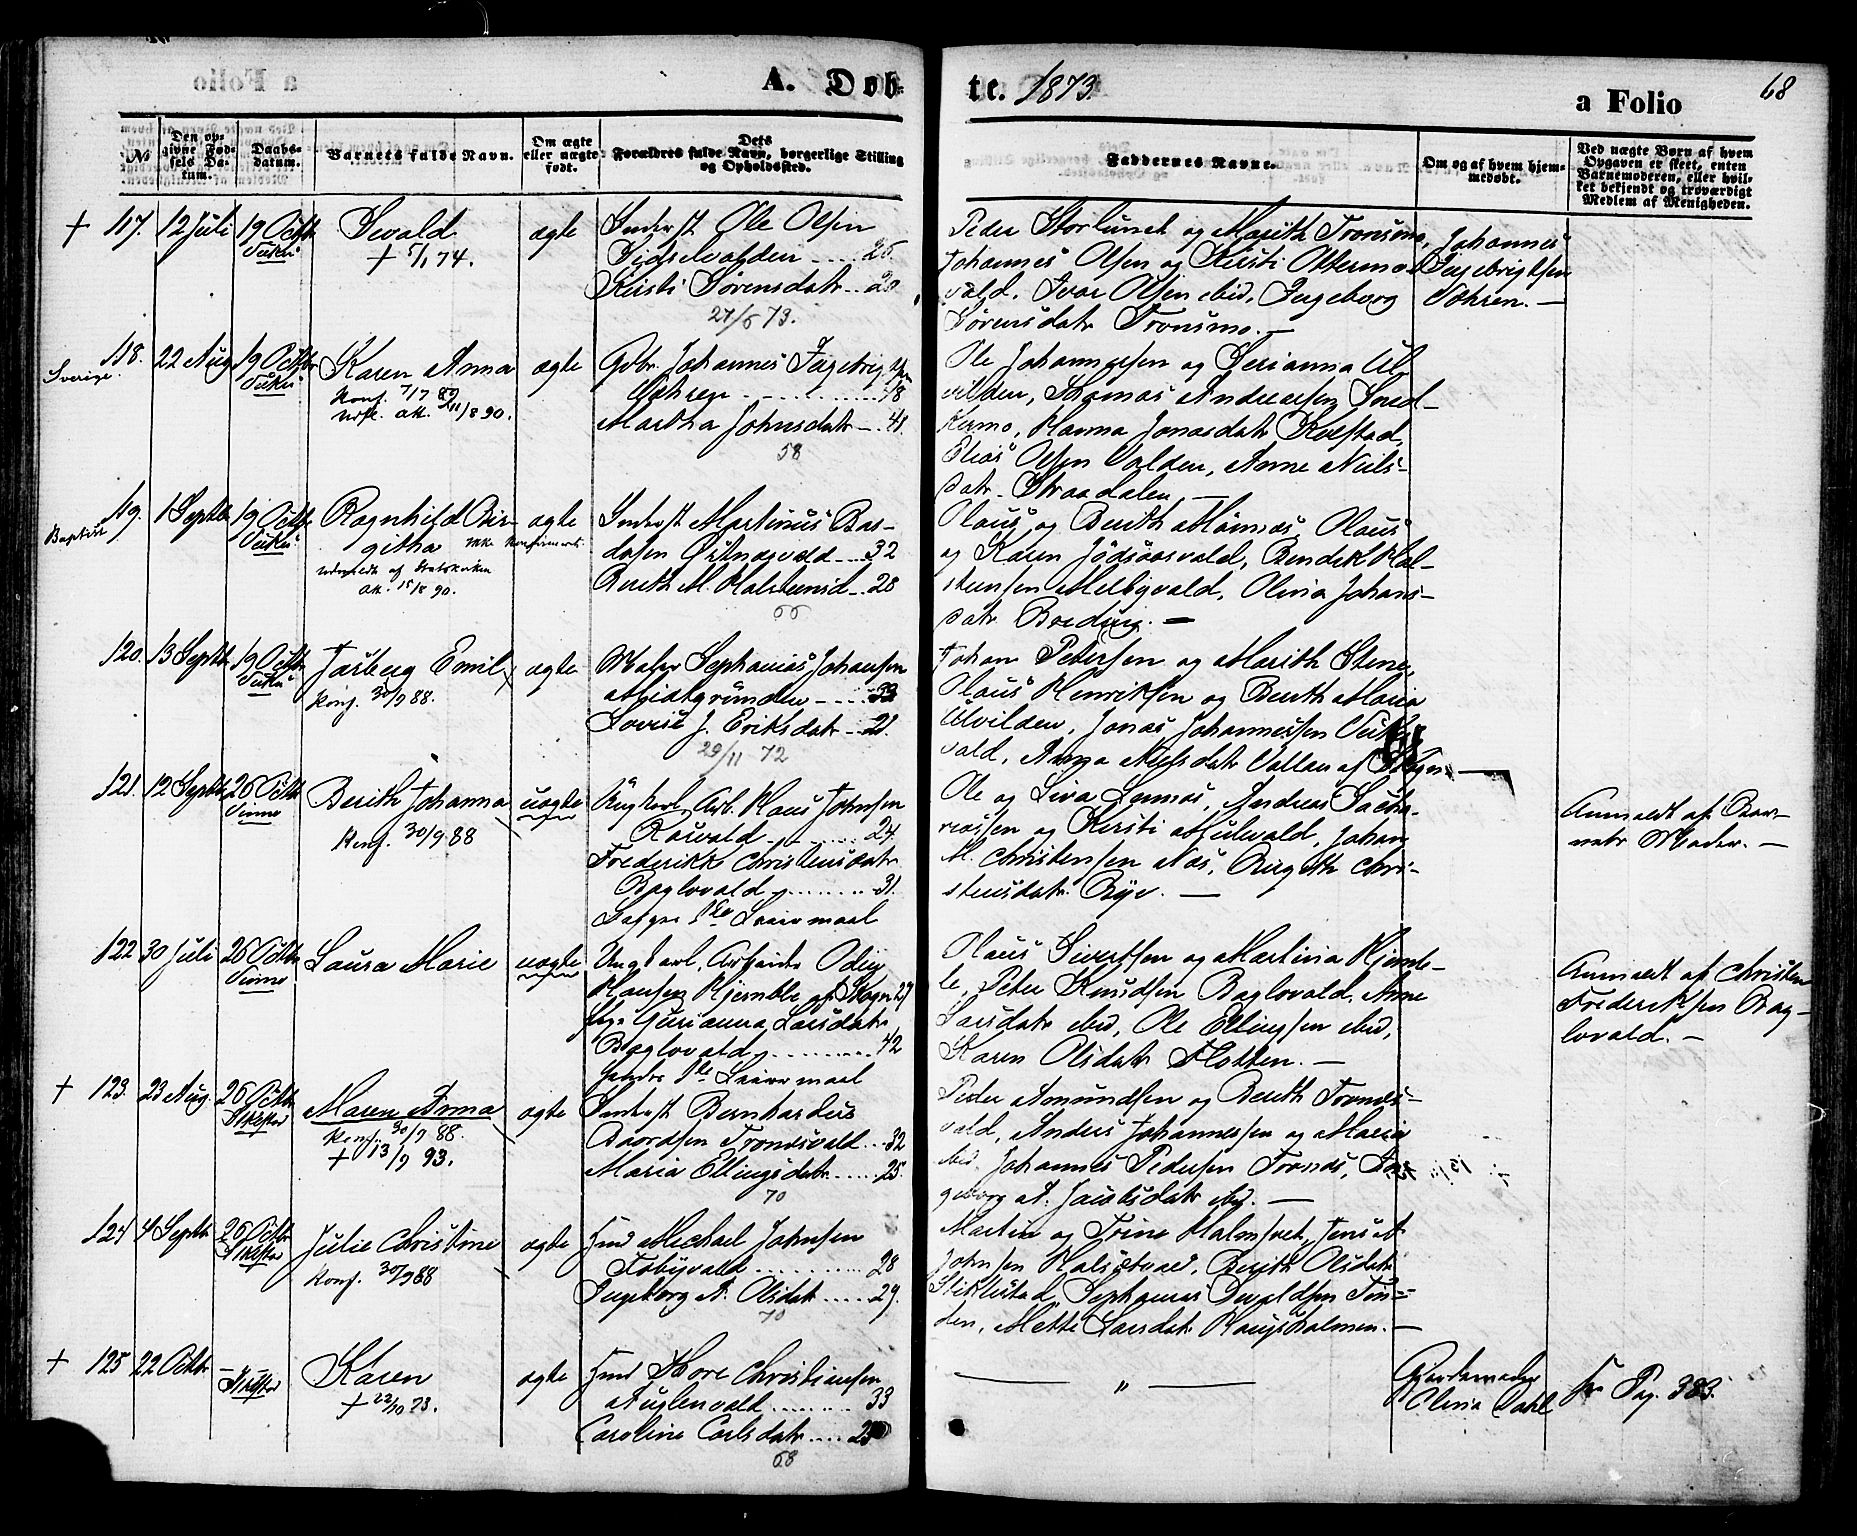 A. Døb-
te. 1873.
a Folio
68
No
Den op-
givne Fød-
sels Da-
tum.
Daabs-
datum.
Barnets fulde Navn.
Om ægte
eller uægte
født.
Dets
Forældres fulde Navn, borgerlige Stilling
og Opholdssted.
Faddernes Navne.
Om og af hvem hjem-
medøbt.
Ved uægte Børn af hvem
Opgaven er skeet, enten
Barnemoderen, eller hvil-
ket bekjendt og troværdigt
Medlem af Menigheden.
+ 117. 12 Juli 19 Octbr
Vukui
Sevald
+ 5/1 74.
ægte
Inderst Ole Olsen
Sidselvolden .... 26.
Kirsti Sørensdatr .. 20
27/6 73.
Peder Storlunet og Marith Tronsmo,
Johannes Olsen og Kirsti Ostermo-
vald, Ivar Olsen ibid, Ingeborg
Sørensdatr Tronsmo. —
Johannes
Ingebrigtsen
Vohren. —
Sverige.
118. 22 Aug 19 Octbr
Vukui
Karen Anna
Konf. 7/7 89
att. 11/8 90.
ægte
Gbr. Johannes Ingebrigtsen
Vohren ........ 48
Martha Johnsdatr — 41.
58
Ole Johannessen og Serianna Ul-
vilden, Thomas Andreassen Sned-
kermo, Hanna Jonasdatr Kolstad,
Elias Olsen Volden, Anne Niels-
datr Straadalen —
Baptist
119. 1 Septbr 19 Octbr
Vukui
Ragnhild Bir-
githa ikke konfirmert
udmeldt af Statskirken
att. 15/8 90.
ægte
Inderst Martinus Bar-
dosen Østnesvald ... 32
Berith M. Halstensd .. 28
66
Olaus og Berith Mønnes, Olaus
og Karen Jødsaasvald, Bendik Hal-
stensen Melbyvald, Olivia Johans-
datr Breding. —
120. 13 Septbr 19 Octbr
Vukui
Tarberg Emil
Konf. 30/9 88.
ægte
Maler Sephanias Johansen
Midtgrunden — .... 33
Lovise J. Eriksdatr — 21.
29/11 72
Johan Petersen og Marith Stene,
Olaus Henriksen og Berith Maria
Ulvilden, Jonas Johannessen Vuku-
vald, Anna Nilsdatr Vollan af Skogn. —
121. 12 Septbr 26 Octbr
Vinne
Berith Johanna
Konf. 30/9 88
uægte
Ungkarl, Arb. Hans Johnsen
Rosvald ...... 24.
Frederikke Christensdatr
Baglovald ........ 31.
Ole og Liva Lennes, Andreas Sacha-
riassen og Kirsti Mulevald, Johan
M. Christensen Næs, Birgith Chri-
stensdatr Bye. —
Anmeldt af Bar-
nets Moder. —
122 30 Juli 26 Octbr
Vinne
Laura Marie
uægte
Ungkarl, Arbeider Odin
Hansen Hjemble af Skogn 27
Pige Gurianna Larsdatr
Baglovald ......... 42
Olaus Sivertsen og Martina Hjemb-
le, Peter Knudsen Baglovald, Anne
Larsdatr ibid, Ole Ellingsen ibid,
Karen Olsdatr Flotten. —
Anmeldt af Christen
Frederiksen Bag-
lovald. —
+ 123. 23 Aug. 26 Octbr
Alstad
Maren Anna
Konf. 30/9 88.
+ 13/9 93.
ægte
Inderst Bernhardus
Baardsen Trondsvald ... 32
Maria Ellingsdatr ..... 25.
70
Peder Amundsen og Berith Tronds-
vald, Anders Johannessen og Maria
ibid, Johannes Pedersen Tronds, In-
geborg A. Jacobsdatr ibid. —
124 4 Septbr 26 Octbr
Julie Christine
Konf. 30/9 88
ægte
Hmd Michael Johnsen
Tobyvald ......... 28
Ingeborg A. Olsdatr ..... 29.
70
Martin og Trine Halmsvet, Jens A.
Johnsen Halsetvald, Berith Olsdatr
Stiklestad, Sephanias
den, Mette Larsdatr Haugsholmen. —
+ 125 22 Octbr
Karen
+ 22/10 73.
ægte
Hmd Thore Christiansen
Auglenvald ........ 33
Caroline Carlsdatr .... 25
68
— „ —
Gjordemoder
Olivia Dahl
fr Pag. 383.